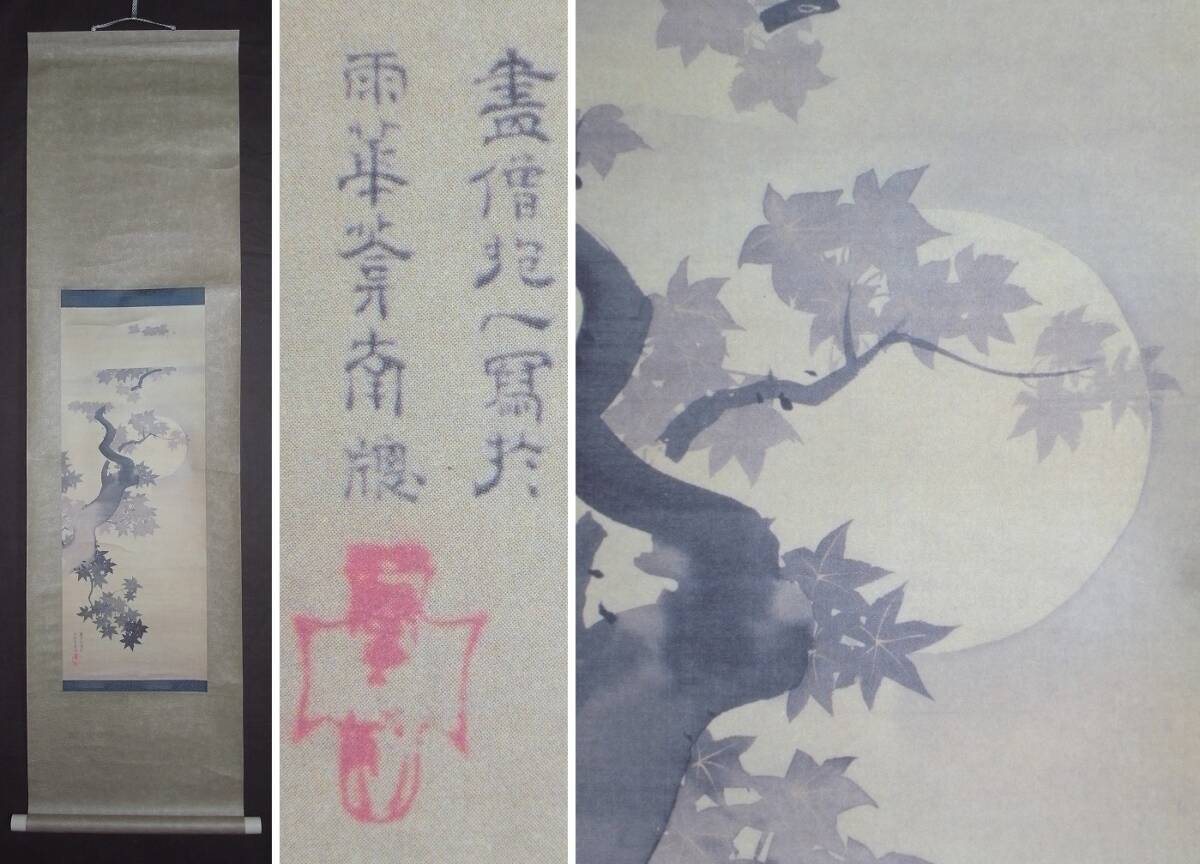 畫僧抱一寫於
雨華葊南牕